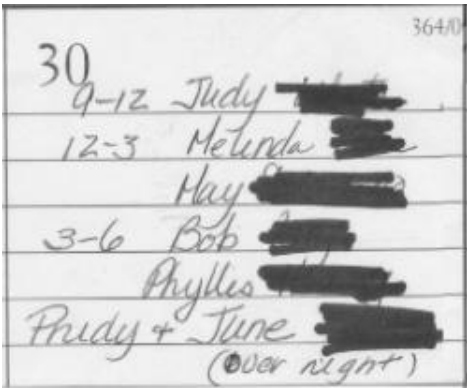 364/0
30
9-12 Judy
12-3 Melinda
May
3-6 Bob
Phyllis
Prudy + June
(over night)